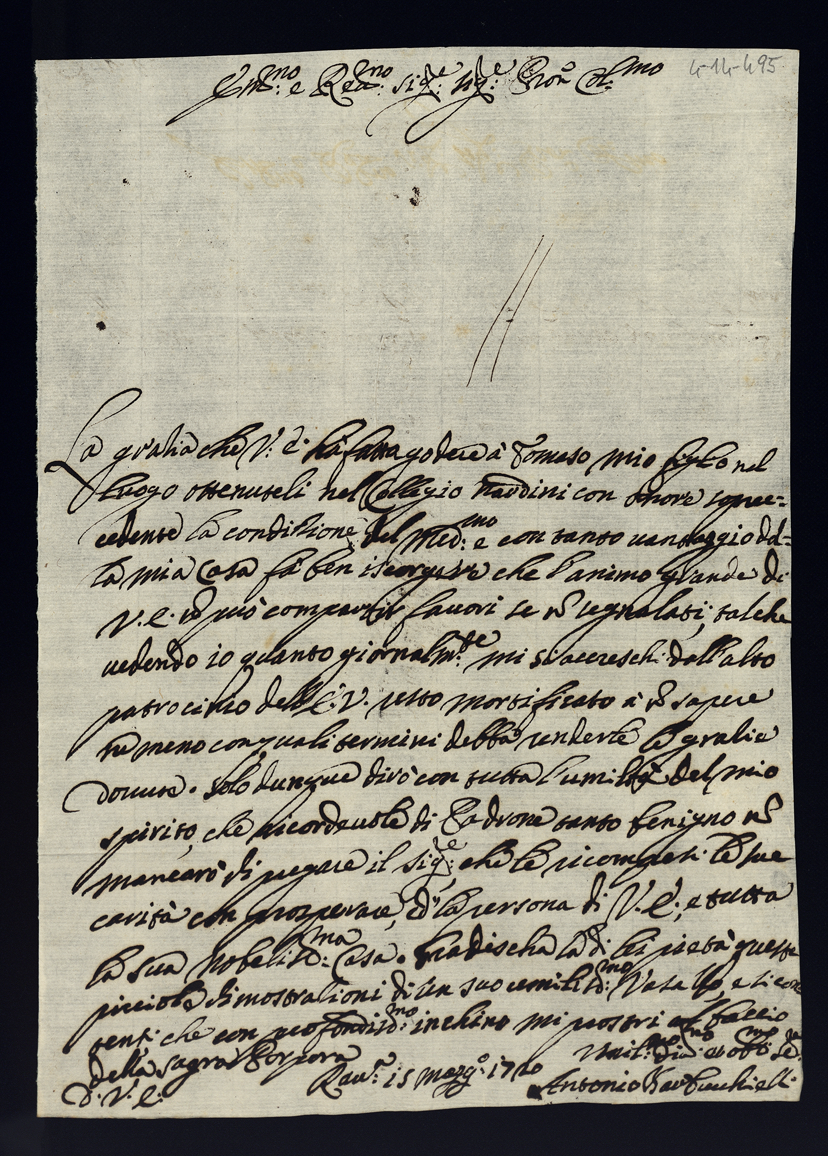 4-14-495
Em.mo e Rev.mo Sig.re Sig.re Pron Col.mo
La gratia che V. E. hà fatta godere à Tomaso mio figlio nel
luogo ottenuteli nel Collegio Nardini con onore soprec-
cedente la conditione del Med.mo e con tanto vantaggio del-
la mia Casa fà ben iscorgere che l'animo grande di
V. E. nõ può compartir favori se nõ segnalati; talche
vedendo io quanto giornalm.te mi si accreschi dall'alto
patrocinio dell'E. V. resto mortificato à nõ sapere
ne meno con quali termini debba renderle le gratie
dovute. Solo dunque dirò con tutta l'umiltà del mio
spirito, che ricordevole di Padrone tanto benigno nõ
mancarò di pregare il Sig.re che le ricompensi le sue
carità con prosperare, e la persona di V. E., e tutta
la sua Nobeliss.ma Casa. Gradischa la di lei pietà queste
picciole dimostrationi di un suo umiliss.mo Vasallo, e si con-
tenti che con profondiss.mo inchino mi prostri al baccio
della sagra Porpora
D. V. E.
Rav.a 15 Marzo 1720
Umil.mo Div.mo et obb.mo Se.re
Antonio